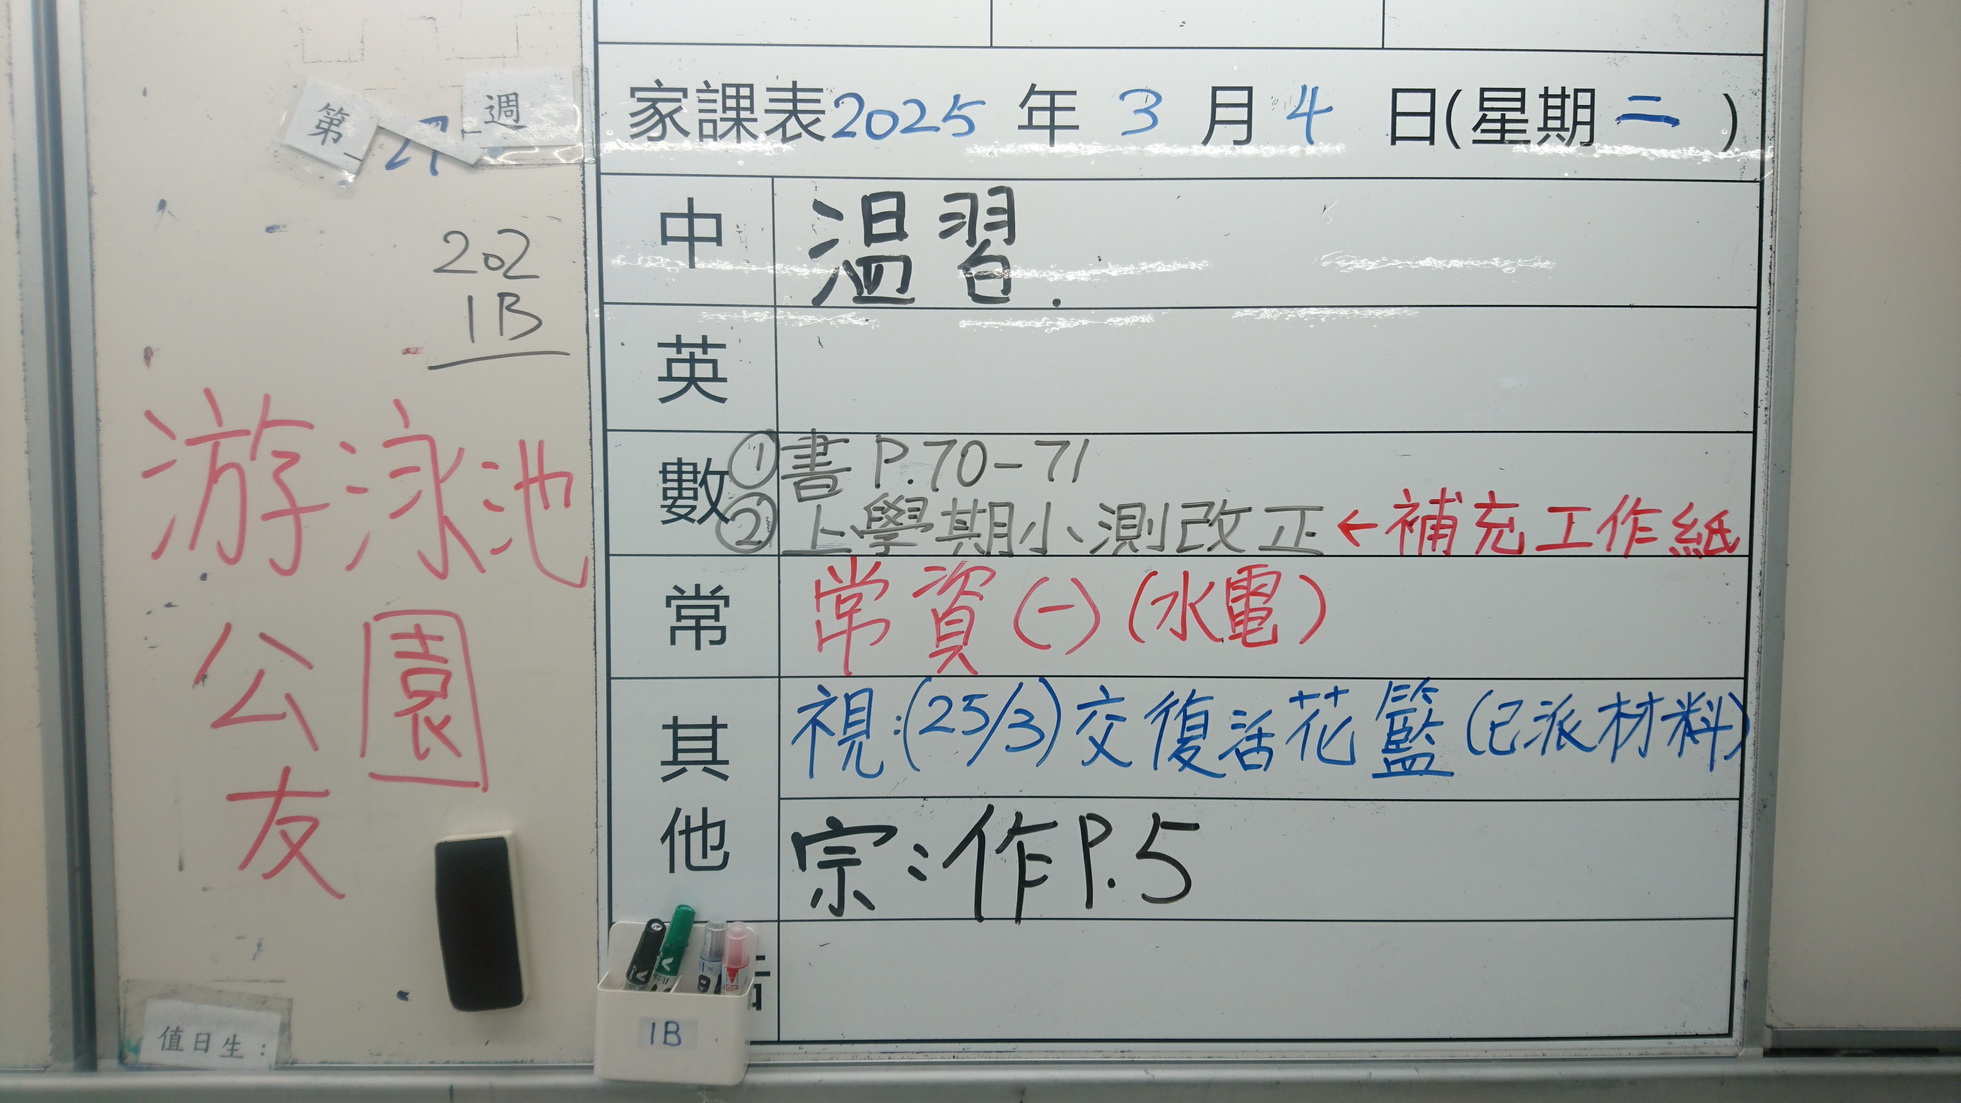 第 27 週
202
1B
游泳池
公園
友
值日生：
家課表2025 年 3 月 4 日(星期二)
中 溫習.
英
數 ①書 P.70-71
②上學期小測改正←補充工作紙
常 常資(一)(水電)
其他 視:(25/3)交復活花籃(已派材料)
宗:作P.5
1B